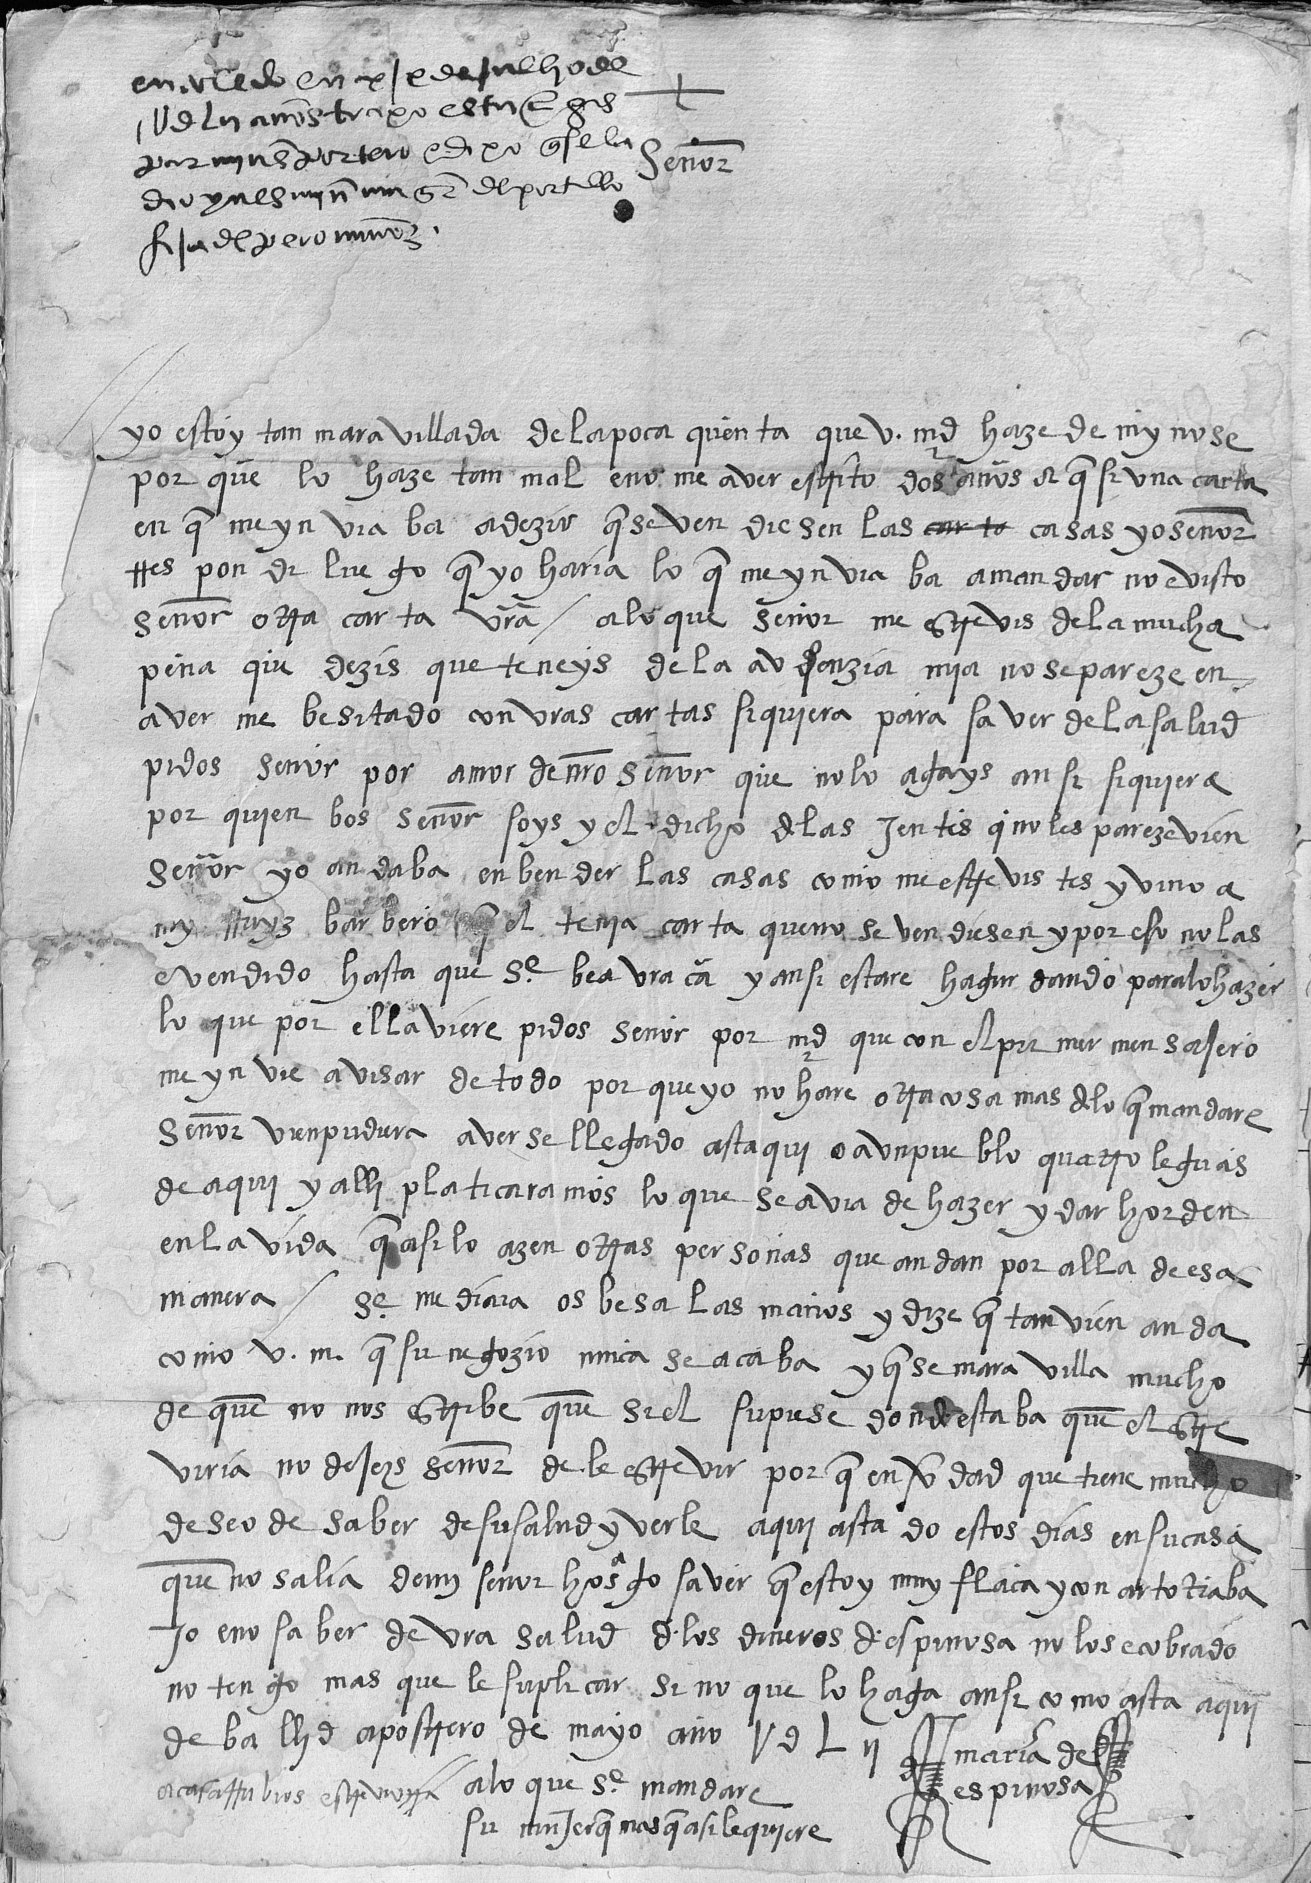 en toledo en xj de julho de
IUdLII años traxo esta
por portero e dixo q se la
dio del portillo
Señor
yo estoy tan maravillada de la poca quenta que v. md haze de my no se
por que lo haze tan mal en no me aver escrito dos años a q si una carta
en q me ynviaba a dezir q se vendiesen las car ta casas yo señor
rrespondi luego q yo haria lo q me ynviaba a mandar no e visto
señor otra carta vra / a lo que señor me screvis de la mucha
pena que dezis que teneys de la avsenzia mia no se pareze en
aver me besitado con vras cartas siquiera para saver de la salud
pidos señor por amor de nro señor que no lo agays ansi siquiera
por quien bos señor soys y el dicho d las Jentes q no les pareze vien
señor yo andaba en bender las casas como me escrevistes y vino a
my rruyz barbero q el tenia carta que no se vendiesen y por eso no las
e vendido hasta que se bea vra ca y ansi estare haguardando para lo hazer
lo que por ella viere pidos señor por md que con el primer mensajero
me ynvie avisar de todo por que yo no hare otra cosa mas d lo q mandare
señor vien pudiera averse llegado asta qui o a un pueblo quatro leguas
de aqui y alli platicaramos lo que se avia de hazer y dar horden
en la vida q asi lo azen otras personas que andan por alla de esa
manera / se mediara os besa las manos y dize q tanvien anda
como v. m. q su negozio nunca se acaba y q se maravilla mucho
de que no nos scribe que si el supiese donde estaba que el scre
viria no dejeys señor de le escrevir por q en vdad que tiene mucho
deseo de saber de su salud y verle aqui asta do estos dias en su casa
que no salia de my señor hos hago saver q estoy muy flaca y con arto traba
Jo en no saber de vra salud d los dineros d espinosa no los e cobrado
no tengo mas que le suplicar si no que lo haga ansi como asta aqui
de ballid a postrero de mayo año IUdLII
maria de
espinosa
a lo que se mandare
su muJer q mas q a si le quiere